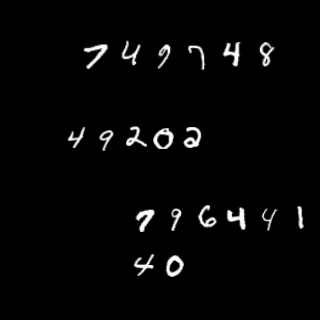 7 4 9 7 4 8
4 9 2 0 2
7 9 6 4 4 1
4 0